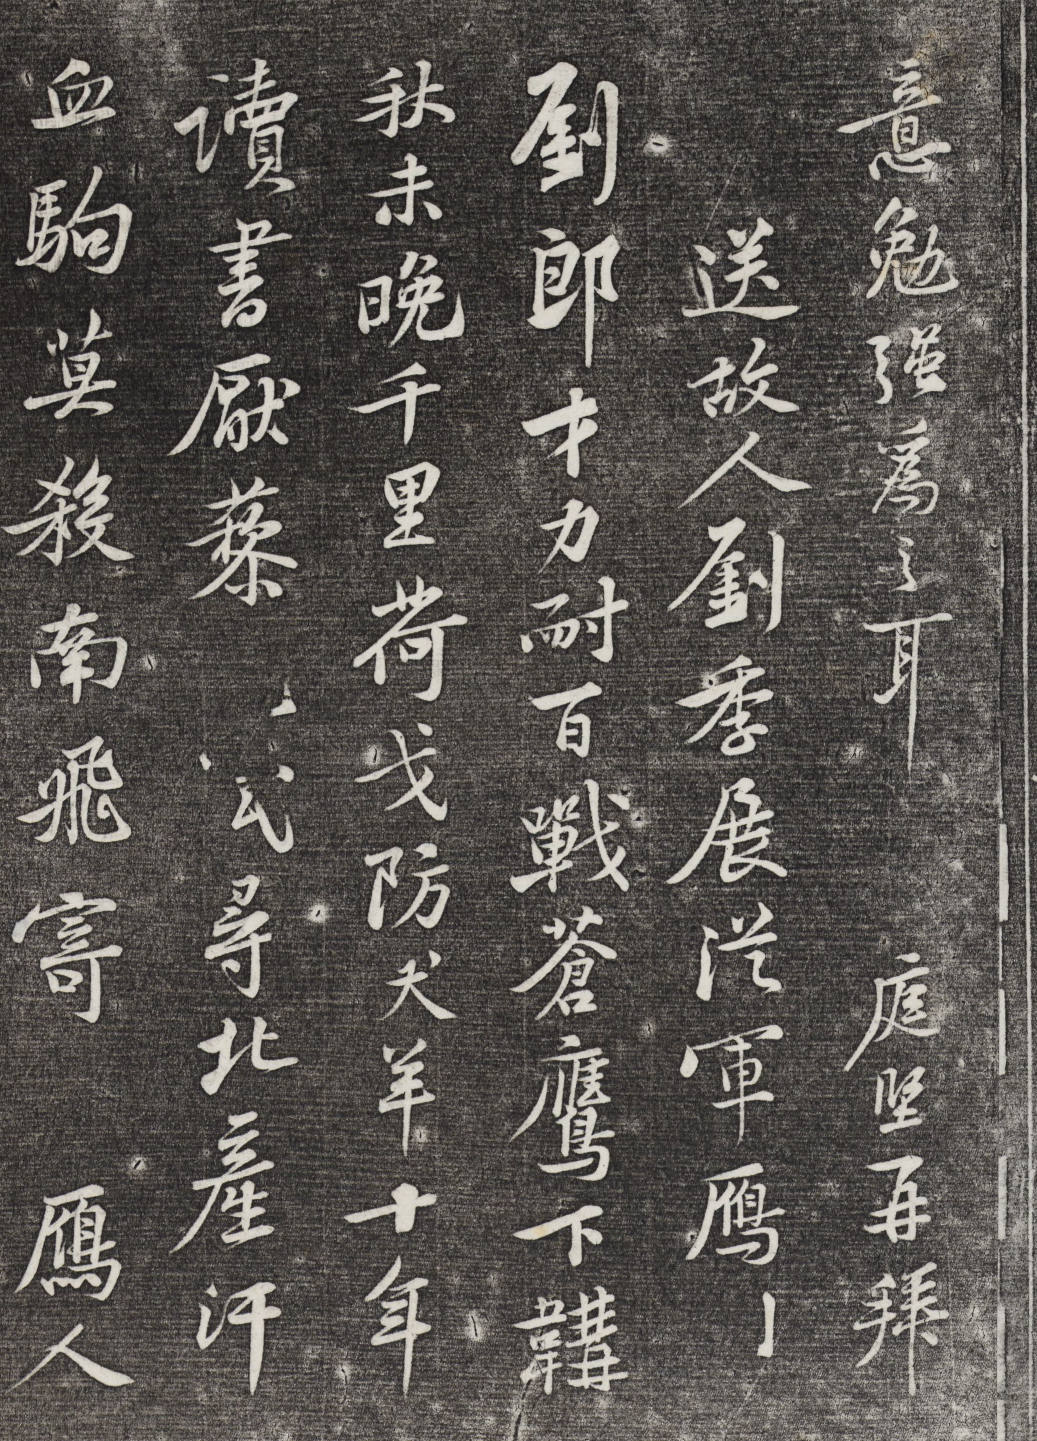 意勉强為之耳 庭堅再拜
送故人劉季展從軍鴈
劉郎才力耐百戰蒼鷹下韝
秋未晚千里荷戈防犬羊十年
讀書厭藜 尋北產汗
血駒莫殺南飛寄 鴈人